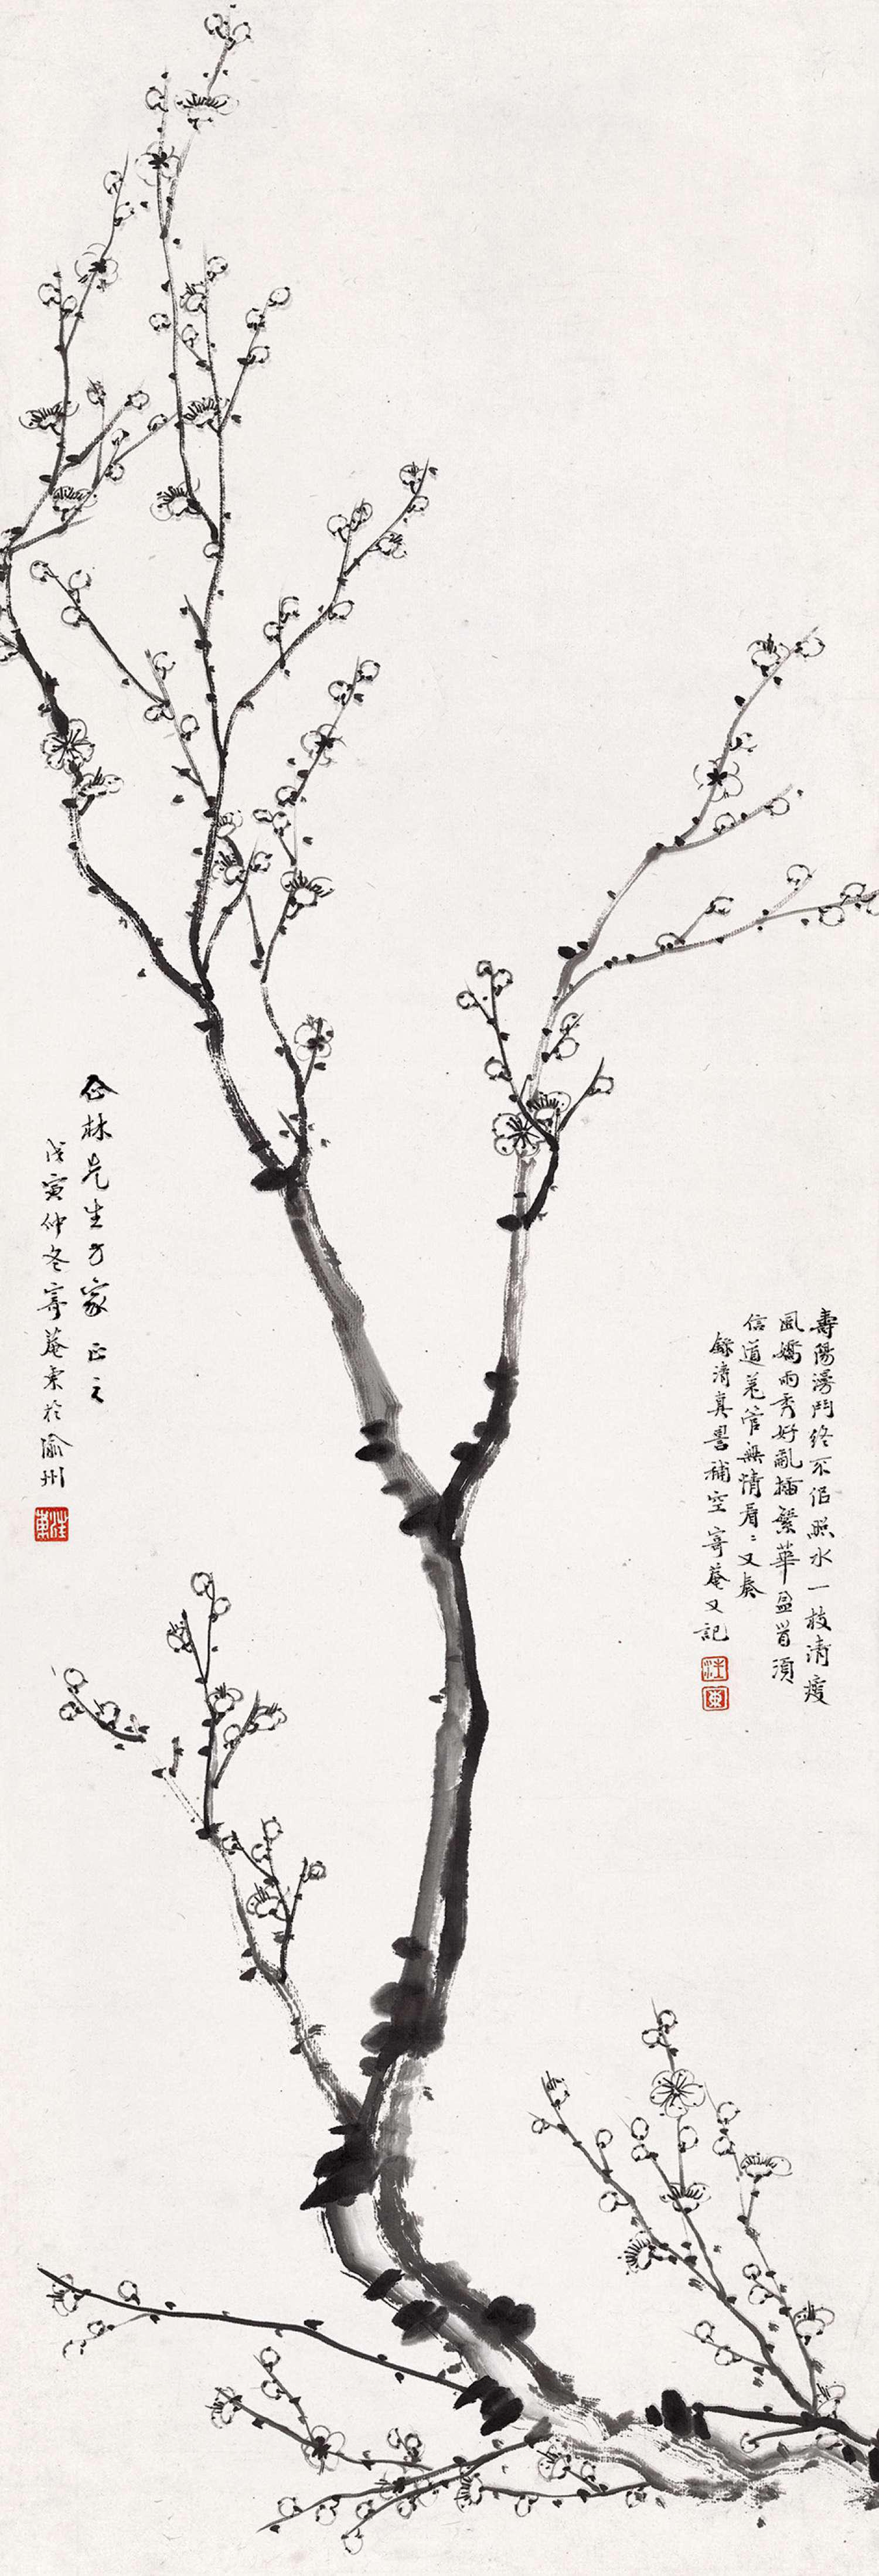 壽陽謾鬥終不似照水一枝清瘦
風嬌雨秀好亂插繁華盈首須
信道羌管無情看=又奏
錄清真詈補空 寄菴又記
汪
東
林先生方家 正之
戊寅仲冬寄菴東於渝州
汪東